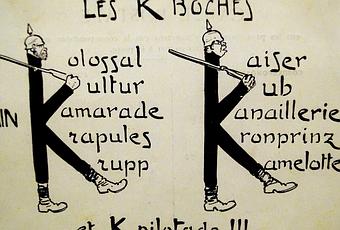 LES K BOCHES
Kolossal
Kultur
Kamarade
Krapules
Krupp
Kaiser
Kub
Kanaillerie
Kronprinz
Kamelotte
IN
et K pilotade !!!